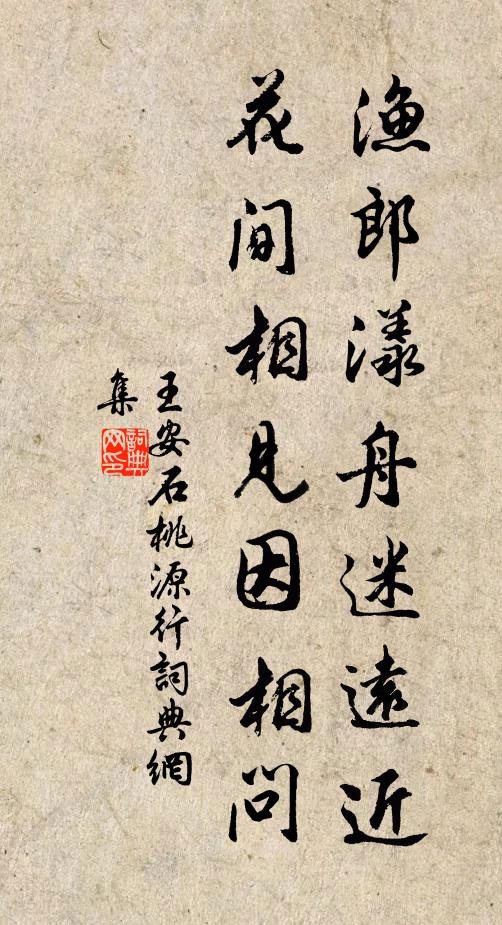 渔郎漾舟迷遠近
花间相見因相问
王安石桃源行詞典網
集
詞典
网印